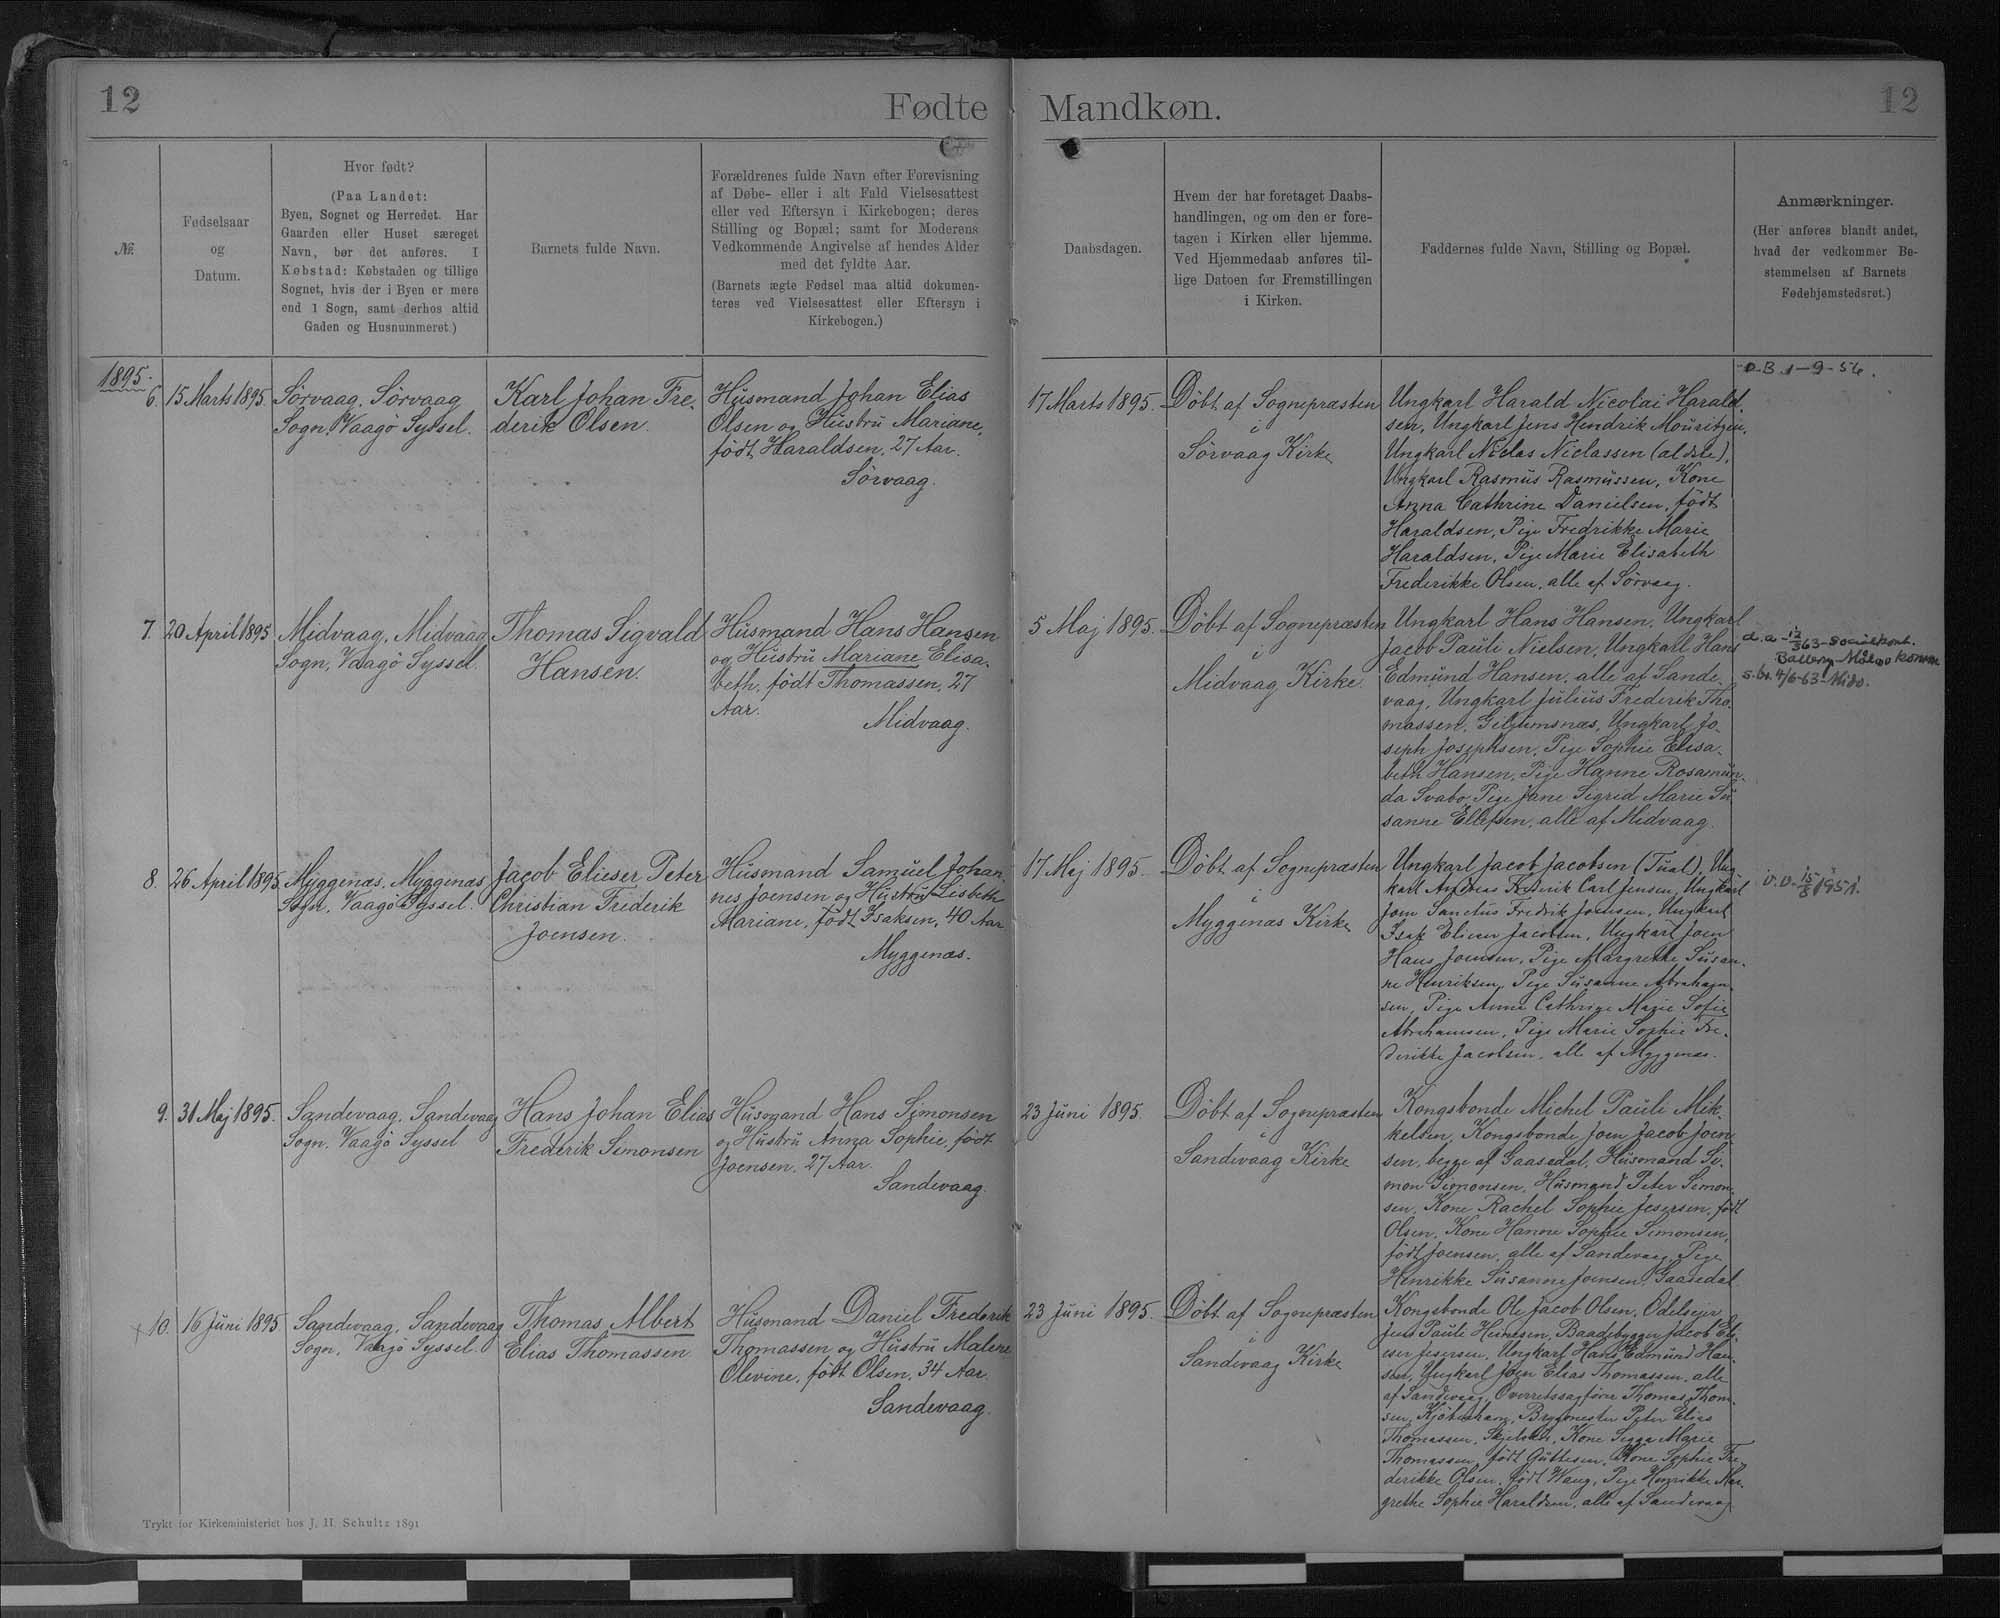 12
Fødte
Mandkøn.
12
№
Fødselsaar
og
Datum.
Hvor født?
(Paa Landet:
Byen, Sognet og Herredet. Har
Gaarden eller Huset særeget
Navn, bør det anføres. I
Købstad: Købstaden og tillige
Sognet, hvis der i Byen er mere
end 1 Sogn, samt derhos altid
Gaden og Husnummeret)
Barnets fulde Navn.
Forældrenes fulde Navn efter Forevisning
af Døbe- eller i alt Fald Vielsesattest
eller ved Eftersyn i Kirkebogen; deres
Stilling og Bopæl; samt for Moderens
Vedkommende Angivelse af hendes Alder
med det fyldte Aar.
(Barnets ægte Fødsel maa altid dokumen-
teres ved Vielsesattest eller Eftersyn i
Kirkebogen.)
Daabsdagen.
Hvem der har foretaget Daabs-
handlingen, og om den er fore-
tagen i Kirken eller hjemme.
Ved Hjemmedaab anføres til-
lige Datoen for Fremstillingen
i Kirken.
Faddernes fulde Navn, Stilling og Bopæl.
Anmærkninger.
(Her anføres blandt andet,
hvad der vedkommer Be-
stemmelsen af Barnets
Fødehjemstedsret.)
1895.
6.
15 Marts 1895.
Sörvaag, Sörvaag
Sogn, Vaagö Syssel.
Karl Johan Fre-
derik Olsen.
Husmand Johan Elias
Olsen og Hustru Mariane,
født Haraldsen, 27 Aar.
Sörvaag.
17 Marts 1895.
Döbt af Sognepræsten
i
Sörvaag Kirke
Ungkarl Harald Nicolai Harald-
sen, Ungkarl Jens Hendrik Mouritzen,
Ungkarl Niclas Niclassen (aldste),
Ungkarl Rasmus Rasmussen, Kone
Anna Cathrine Danielsen, født
Haraldsen, Pige Fredrikke Marie
Haraldsen, Pige Marie Elisabeth
Frederikke Olsen, alle af Sörvaag.
D.B. 1-9-54.
7.
20 April 1895
Midvaag, Midvaag
Sogn, Vaagö Syssel.
Thomas Sigvald
Hansen.
Husmand Hans Hansen
og Hustru Mariane Elisa-
beth, født Thomassen, 27
Aar.
Midvaag.
5 Maj 1895.
Döbt af Sognepræsten
i
Midvaag Kirke.
Ungkarl Hans Hansen, Ungkarl
Jacob Pauli Nielsen, Ungkarl Hans
Edmund Hansen, alle af Sande-
vaag, Ungkarl Julius Frederik Tho-
massen, Ungkarl Jo-
seph Josephsen, Pige Sophie Elisa-
beth Hansen, Pige Hanne Rosamun-
da Svabo, Pige Jane Sigrid Marie Su-
sanne Ellefsen, alle af Midvaag.
d.a. 12/3 63 - Socialkont.
Ballerup-Måløv komm.
s.br. 4/6-63
8.
26 April 1895
Myggenæs, Myggenæs
Sogn, Vaagö Syssel.
Jacob Elieser Peter
Christian Frederik
Joensen.
Husmand Samuel Johan-
nes Joensen og Hustru Lisbeth
Mariane, født Isaksen, 40 Aar
Myggenæs.
17 Maj 1895.
Döbt af Sognepræsten
i
Myggenæs Kirke
Ungkarl Jacob Jacobsen, Ung-
karl Andreas Carl Jensen, Ungkarl
Joen Sanctus Fredrik Joensen, Ungkarl
Isak Elieser Jacobsen, Ungkarl Joen
Hans Joensen, Pige Margrethe Susan-
ne Henriksen, Pige Susanne Abraham-
sen, Pige Anne Cathrine Marie Sofie
Abrahamsen, Pige Marie Sophie Fre-
derikke Jacobsen, alle af Myggenæs.
15/5 1951.
9.
31 Maj 1895.
Sandevaag, Sandevaag
Sogn, Vaagö Syssel
Hans Johan Elias
Frederik Simonsen
Husmand Hans Simonsen
og Hustru Anna Sophie, født
Joensen, 27 Aar.
Sandevaag.
23 Juni 1895.
Döbt af Sognepræsten
i
Sandevaag Kirke
Kongsbonde Michel Pauli Mik-
kelsen, Kongsbonde Joen Jacob Joen-
sen, begge af Gaasedal, Husmand Si-
mon Simonsen, Husmand Peter Simon-
sen, Kone Rachel Sophie Jesersen, født
Olsen, Kone Hanne Sophie Simonsen,
født Joensen, alle af Sandevaag, Pige
Henrikke Susanne Joensen, Gaasedal
10.
16 Juni 1895
Sandevaag, Sandevaag
Sogn, Vaagö Syssel.
Thomas Albert
Elias Thomassen
Husmand Daniel Frederik
Thomassen og Hustru Malene
Olevine, født Olsen, 34 Aar.
Sandevaag.
23 Juni 1895.
Döbt af Sognepræsten
i
Sandevaag Kirke
Kongsbonde Ole Jacob Olsen, Odelsejer
Jens Pauli Heinesen, Baadebygger Jacob Eli-
eser Jesersen, Ungkarl Hans Edmund Han-
sen, Ungkarl Joen Elias Thomassen, alle
af Sandevaag, Overretssagfører Thomas Thom-
sen, Kjöbenhavn, Brygmester Peter Elias
Thomassen, Kone Sigga Marie
Thomassen, født Guttesen, Kone Sophie Fre-
derikke Olsen, født Waag, Pige Henrikke Mar-
grethe Sophie Haraldsen, alle af Sandevaag
Trykt for Kirkeministeriet hos J. H. Schultz 1891